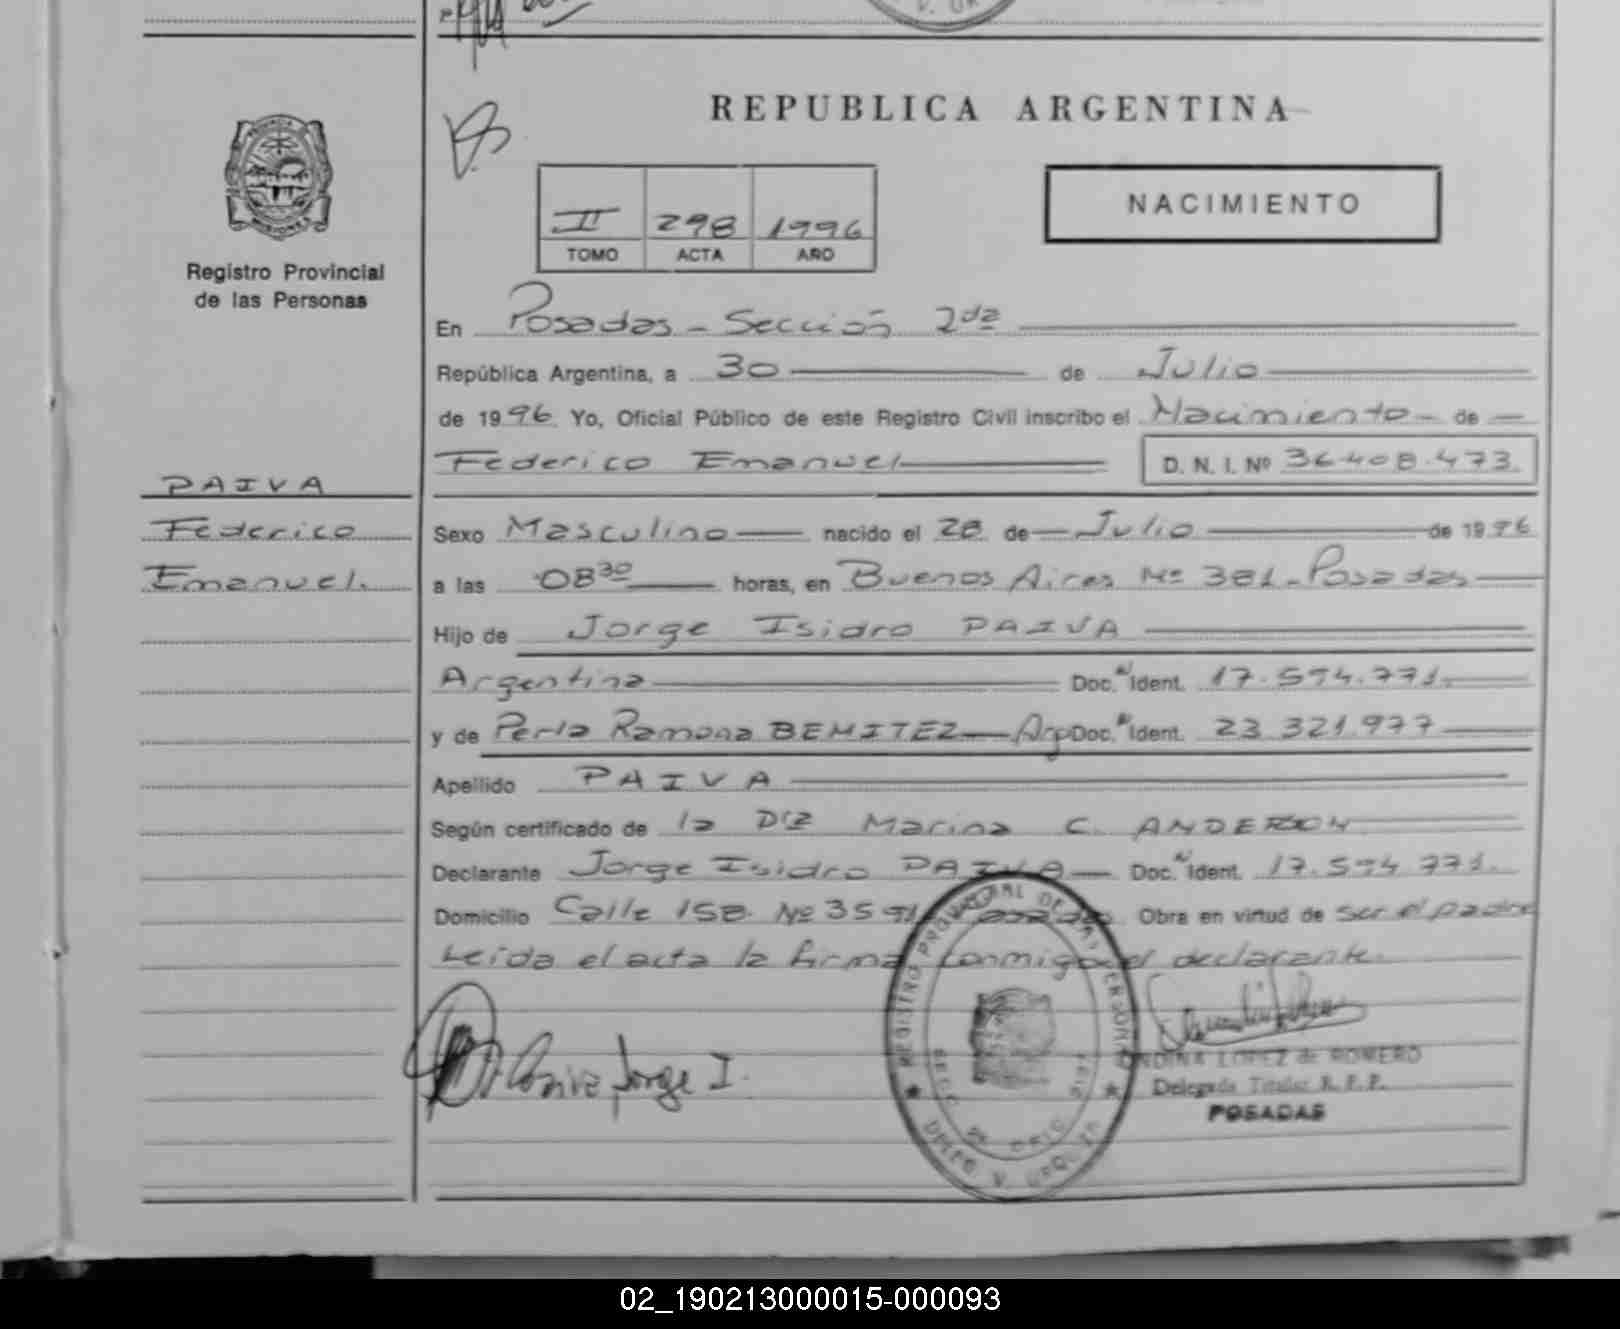 REPUBLICA ARGENTINA
II 298 1996
TOMO ACTA AÑO
NACIMIENTO
Registro Provincial
de las Personas
En Posadas - Sección 2da
República Argentina, a 30 de Julio
de 1996 Yo, Oficial Público de este Registro Civil inscribo el Nacimiento de
Federico Emanuel D. N. I. Nº 36.408.473
PAIVA
Federico
Emanuel.
Sexo Masculino nacido el 28 de Julio de 1996
a las 08 30 horas, en Buenos Aires Nº 381 - Posadas
Hijo de Jorge Isidro PAIVA
Argentina Doc. Ident. 17.594.771.
y de Perla Ramona BENITEZ - Arg Doc. Ident. 23 321.977
Apellido PAIVA
Según certificado de la Dra Marina C. ANDERSON
Declarante Jorge Isidro PAIVA - Doc. Ident. 17.594.771.
Domicilio Calle 158 Nº 3591 Posadas Obra en virtud de ser el padre
Leída el acta la firma conmigo el declarante.
Paiva, Jorge I.
REGISTRO PROVINCIAL DE LAS PERSONAS
LOPEZ de ROMERO
Delegada Titular R. P. P.
POSADAS
02_190213000015-000093